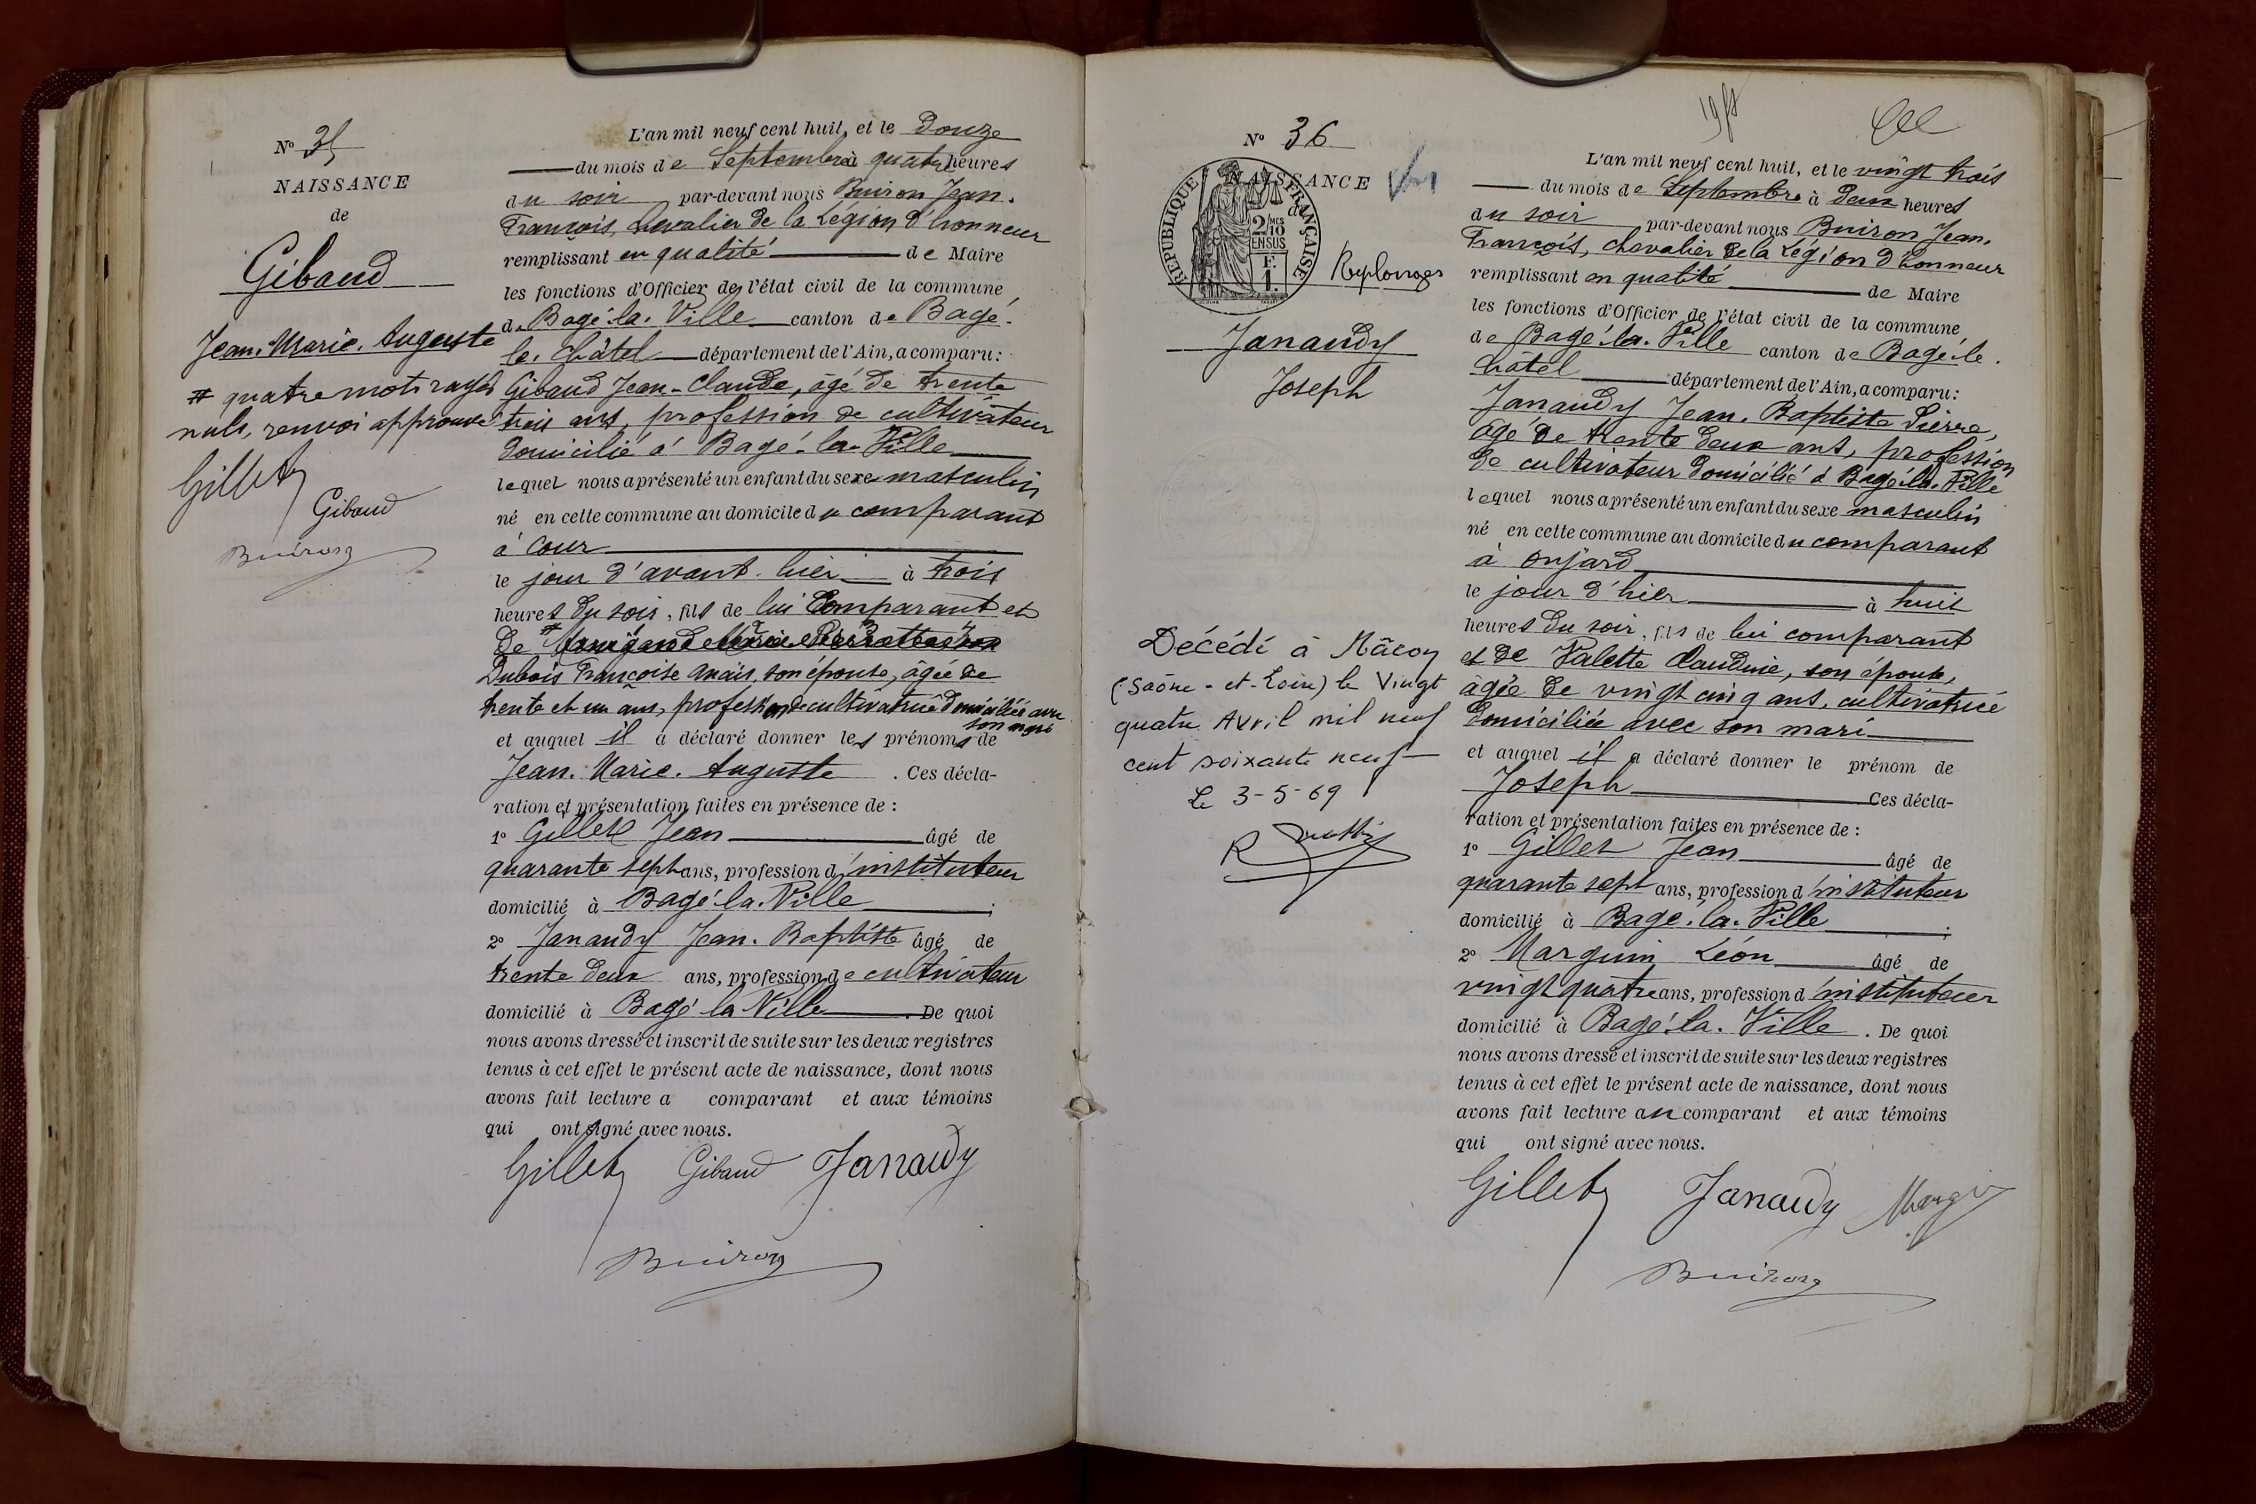 N° 35
NAISSANCE
de
Gibaud
Jean. Marie. Auguste
# quatre mots rayés
nuls, renvoi approuvé
Gillet
Gibaud
Buiron
L'an mil neuf cent huit, et le douze
du mois de Septembre à quatre heures
du soir par-devant nous Buiron Jean.
François, chevalier de la Légion d'honneur
remplissant en qualité de Maire
les fonctions d'Officier de l'état civil de la commune
de Bagé-la-Ville canton de Bagé-
le-Châtel département de l'Ain, a comparu:
Gibaud Jean-Claude, âgé de trente
trois ans, profession de cultivateur
domicilié à Bagé-la-Ville
lequel nous a présenté un enfant du sexe masculin
né en cette commune au domicile du comparant
à Cour
le jour d'avant-hier à trois
heures du soir, fils de lui Comparant et
de #
Dubois Françoise Anaïs, son épouse, âgée de
trente et un ans, profession de cultivatrice domiciliée avec
son mari
et auquel il a déclaré donner les prénoms de
Jean. Marie. Auguste. Ces décla-
ration et présentation faites en présence de :
1° Gillet Jean âgé de
quarante sept ans, profession d'instituteur
domicilié à Bagé-la-Ville ;
2° Janaudy Jean. Baptiste âgé de
trente deux ans, profession de cultivateur
domicilié à Bagé la Ville. De quoi
nous avons dressé et inscrit de suite sur les deux registres
tenus à cet effet le présent acte de naissance, dont nous
avons fait lecture a comparant et aux témoins
qui ont signé avec nous.
Gillet Gibaud Janaudy
Buiron
N° 36
NAISSANCE
de
RÉPUBLIQUE FRANÇAISE
2/10 EN SUS
F. 1.
Replonges
Janaudy
Joseph
Décédé à Mâcon
(Saône-et-Loire) le Vingt
quatre Avril mil neuf
cent soixante neuf
Le 3-5-69
L'an mil neuf cent huit, et le vingt trois
du mois de Septembre à deux heures
du soir par-devant nous Buiron Jean.
François, chevalier de la Légion d'honneur
remplissant en qualité de Maire
les fonctions d'Officier de l'état civil de la commune
de Bagé-la-Ville canton de Bagé-le-
Châtel département de l'Ain, a comparu:
Janaudy Jean. Baptiste Pierre,
âgé de trente deux ans, profession
de cultivateur domicilié à Bagé-la-Ville
lequel nous a présenté un enfant du sexe masculin
né en cette commune au domicile du comparant
à Onjard
le jour d'hier à huit
heures du soir, fils de lui comparant
et de Palette Claudine, son épouse,
âgée de vingt cinq ans, cultivatrice
domiciliée avec son mari
et auquel il a déclaré donner le prénom de
Joseph Ces décla-
ration et présentation faites en présence de :
1° Gillet Jean âgé de
quarante sept ans, profession d'instituteur
domicilié à Bagé-la-Ville ;
2° Marguin Léon âgé de
vingt quatre ans, profession d'instituteur
domicilié à Bagé-la-Ville. De quoi
nous avons dressé et inscrit de suite sur les deux registres
tenus à cet effet le présent acte de naissance, dont nous
avons fait lecture au comparant et aux témoins
qui ont signé avec nous.
Gillet Janaudy
Buiron